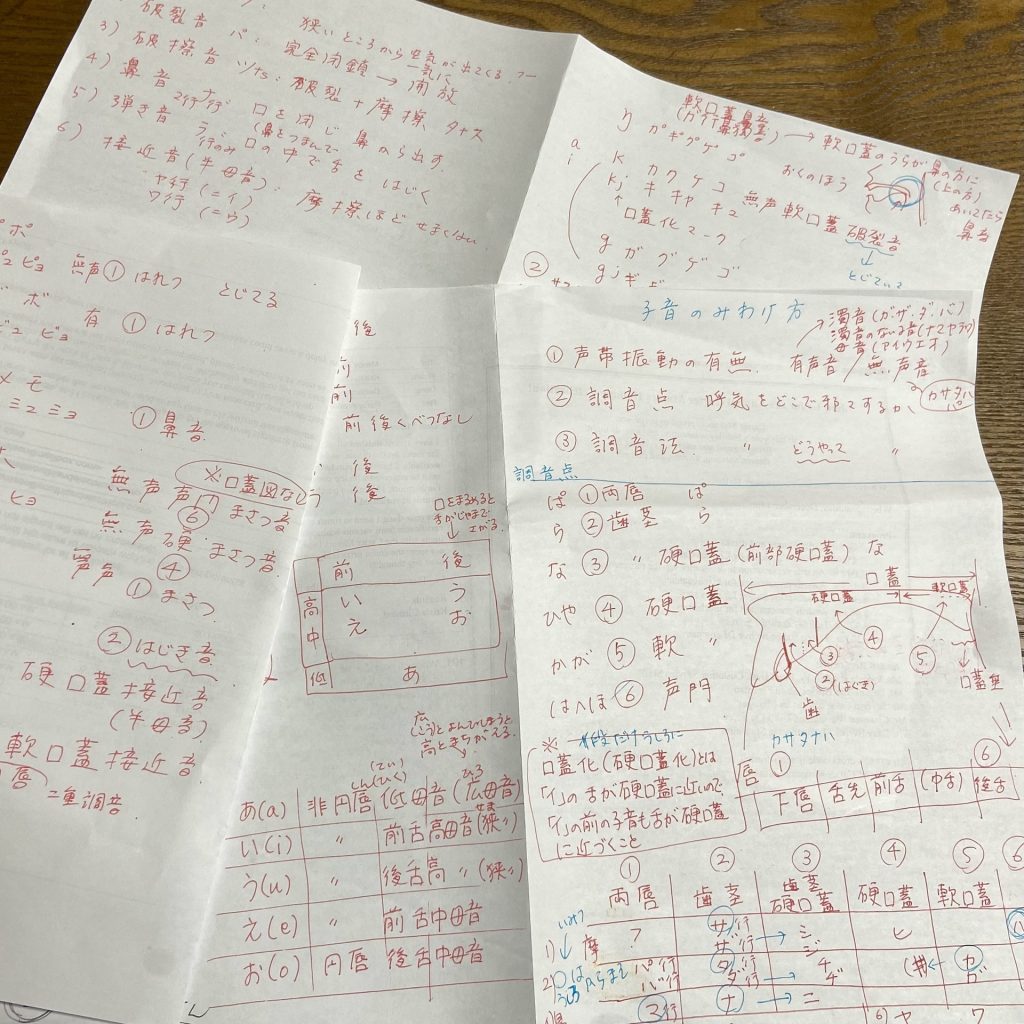 破裂音 パ: 完全閉鎖→開放
狭いところから空気が出てくる
一気に
3) 破擦音 ツts: 破裂+摩擦 タ+ス
4) 鼻音 ナ行マ行 口を閉じ鼻から出す
(鼻をつまんで
5) 弾き音 ラ行のみ: 口の中で舌をはじく
6) 接近音(半母音): 摩擦ほどせまくない
ヤ行(=イ)
ワ行(=ウ)
軟口蓋鼻音
(ガ行鼻濁音) → 軟口蓋のうらが鼻の方に
(上の方)
あいてたら
鼻音
ŋ ガギグゲゴ
おくのほう
a
i
k カクケコ
kj キキャキュ 無声軟口蓋破裂音
↑口蓋化マーク
↓
とじていて
g ガグゲゴ
gj ギ
②
ポ
ピュ ピョ 無声①はれつ とじてる
ボ 有①はれつ
ビュ ビョ
メモ
ミュミョ ①鼻音
※口蓋図なし
無声声門まさつ音
⑥
ヒョ 無声硬まさつ音
④
無声①まさつ
②はじき音
硬口蓋接近音
(半母音)
軟口蓋接近音
唇 二重調音
後
前
前
前後くべつなし
後
後
口をまるめると
舌がじゃまで
さがる
↓
前 後
高 い う
中 え お
低 あ
広
(こう)とよんでしまうと
高とまちがえる
↓
しん(ひく) (てい) ひろ
あ(a) 非円唇 低母音(広母音)
い(i) 〃 前舌高母音(狭〃)
せま
う(u) 〃 後舌高〃(狭〃)
え(e) 〃 前舌中母音
お(o) 円唇 後舌中母音
子音のみわけ方
濁音(ガ.ザ.ダ.バ)
濁音のない音(ナマヤラワ)
母音(アイウエオ)
①声帯振動の有無. 有声音/無声音
カサタハパ
②調音点 呼気をどこで邪マするか
③調音法 〃 どうやって 〃
調音点
ぱ ①両唇 ぱ
ら ②歯茎 ら
な ③〃硬口蓋(前部硬口蓋) な
ひや ④硬口蓋
かが ⑤軟〃
はへほ ⑥声門
口蓋
硬口蓋 軟口蓋
④
③
⑤
②(はぐき)
歯
口蓋垂
※
口蓋化(硬口蓋化)とは
「イ」の舌が硬口蓋に近いので
「イ」の前の子音も舌が硬口蓋
に近づくこと
カサタナハ
唇 ① ⑥
下唇 舌先 前舌 (中舌) 後舌
① ② ③ ④ ⑤ ⑥
両唇 歯茎 歯茎硬口蓋 硬口蓋 軟口蓋
1) 摩 ? サ行→シ ヒ
ザ行 ジ
2) パ行 タ行→チ カ
バ行 ダ行 ヂ ガ
マ行 ナ→ニ
6) ヤ ワ